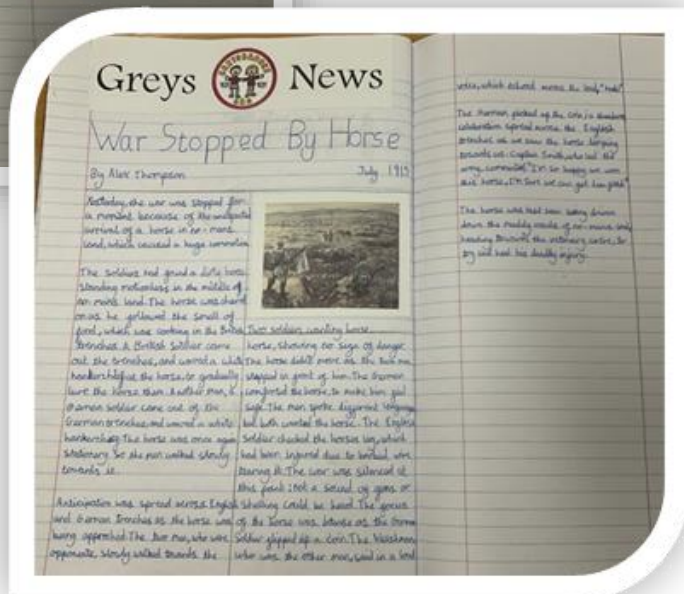 Greys News
War Stopped By Horse
By Alex Thompson
July 1915
Yesterday, the war was stopped for
a moment because of the unexpected
arrival of a horse in no-mans
land, which caused a huge commotion.
The soldiers had found a dirty horse
standing motionless in the middle of
no mans land. The horse was
on as he followed the smell of
food, which was cooking in the
trenches. A British soldier came
out the trenches, and waved a white
at the horse, to gradually
lure the horse them. Another man, a
German soldier came out of the
German trenches and waved a white
The horse was once again
stationary. So the men walked slowly
towards it.
Anticipation was spread across English
and German trenches as the horse was
being approched. The two men, who were
opposite, slowly walked towards the
Two soldiers wanting horse.
horse, showing no sign of danger.
The horse didn't move as the two men
stopped in front of him. The German
comforted the horse, to make him feel
safe. The men spoke different languages
but both wanted the horse. The English
soldier checked the horses leg, which
had been injured due to barbed wire
tearing it. The war was silenced at
this point; not a sound of guns or
shelling could be heard. The focus
of the horse was intense as the German
soldier flipped up a coin. The Welshman
who was the other man, said in a loud
voice, which echoed across the land,
The German picked up the coin, a
celebration spread across the English
trenches as we saw the horse
towards us. Captain Smith, who led the
army, commented "I'm so happy we won
this horse, I'm sure we can get him
The horse was last seen being drawn
down the muddy inside of no-mans land,
heading towards the veterinary centre, to
try and heal his deadly injury.